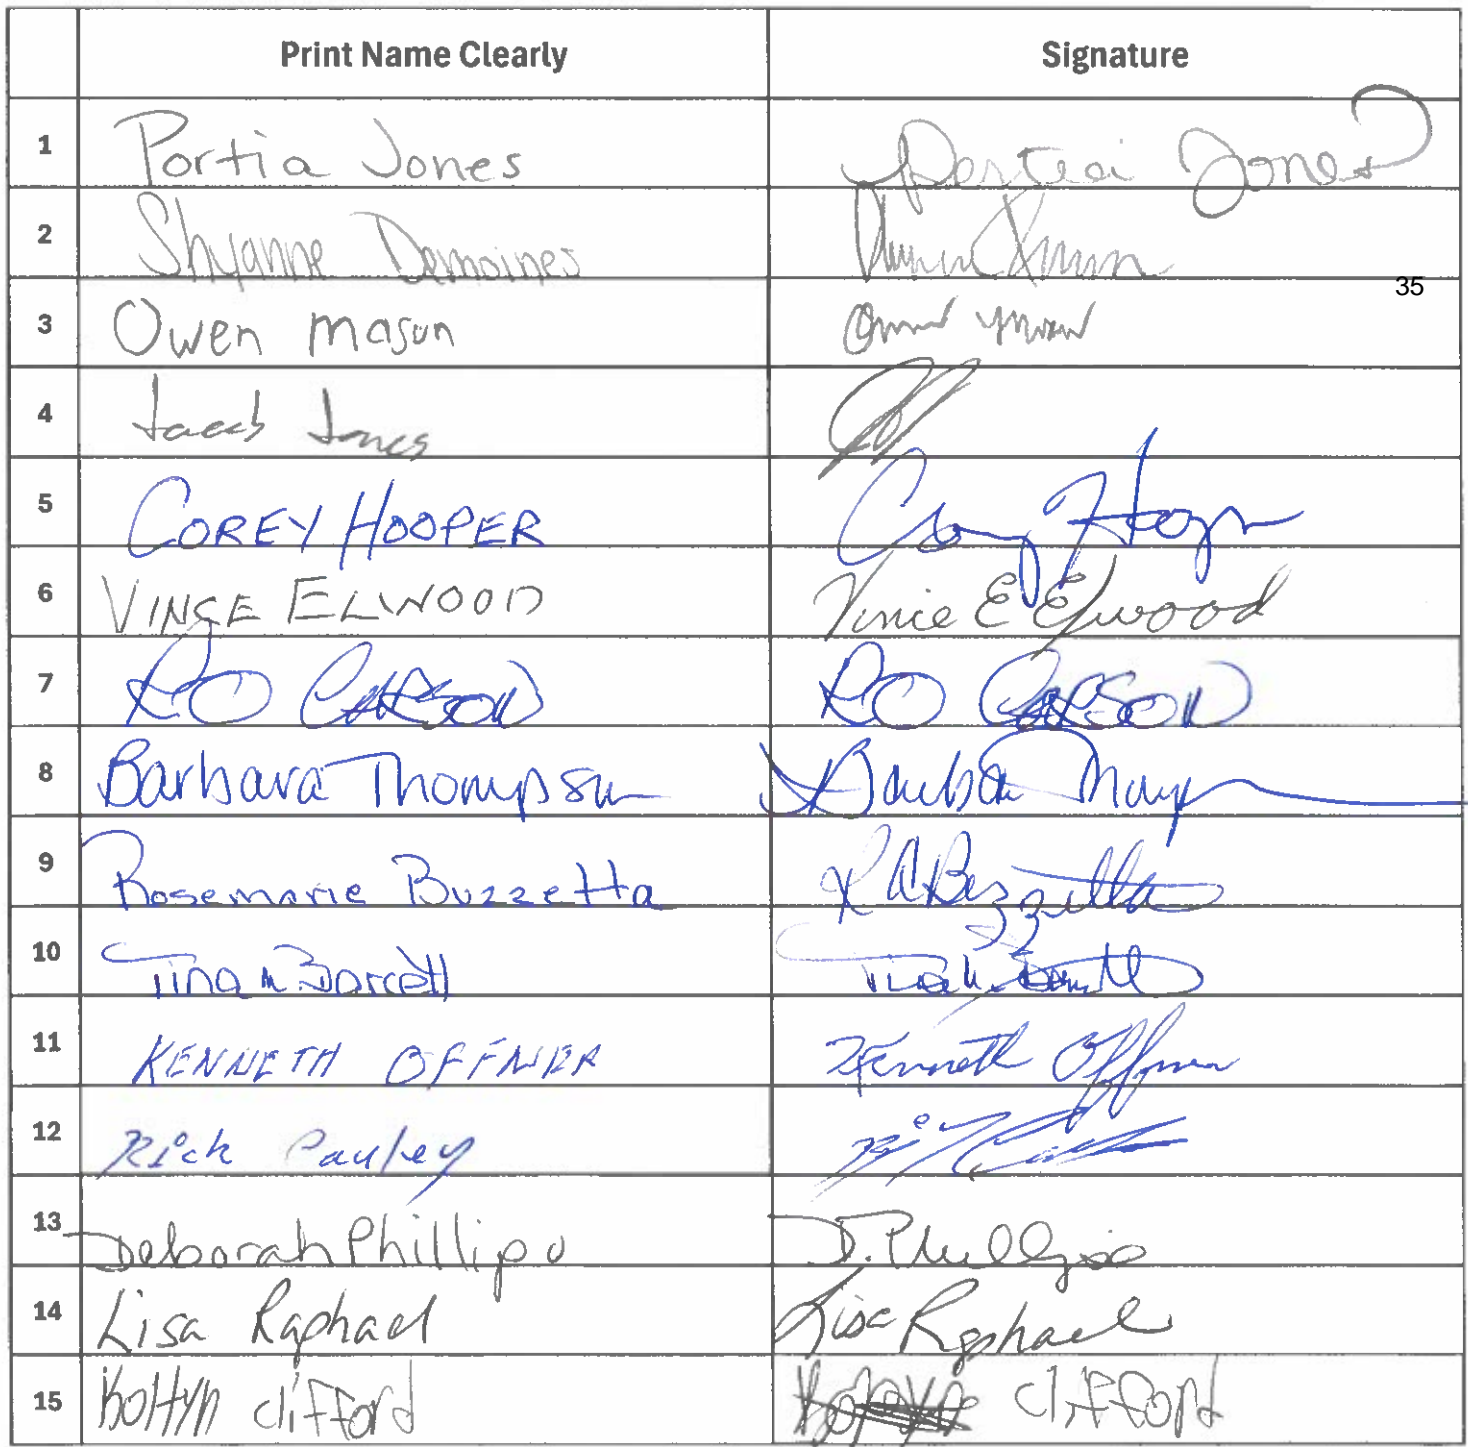 Print Name Clearly Signature
1 Portia Jones Portia Jones
2 Shyanne Demoines
35
3 Owen Mason
4 Jacob Jones
5 COREY HOOPER Corey Hooper
6 VINCE ELWOOD Vince E Elwood
7 RO CARSON RO CARSON
8 Barbara Thompson Barbara
9 Rosemarie Buzzetta R A Buzzetta
10 Tina M. Barrett
11 KENNETH OFFNER Kenneth Offner
12 Rick Pauley
13 Deborah Phillips D. Phillips
14 Lisa Raphael Lisa Raphael
15 Koltyn Clifford Clifford